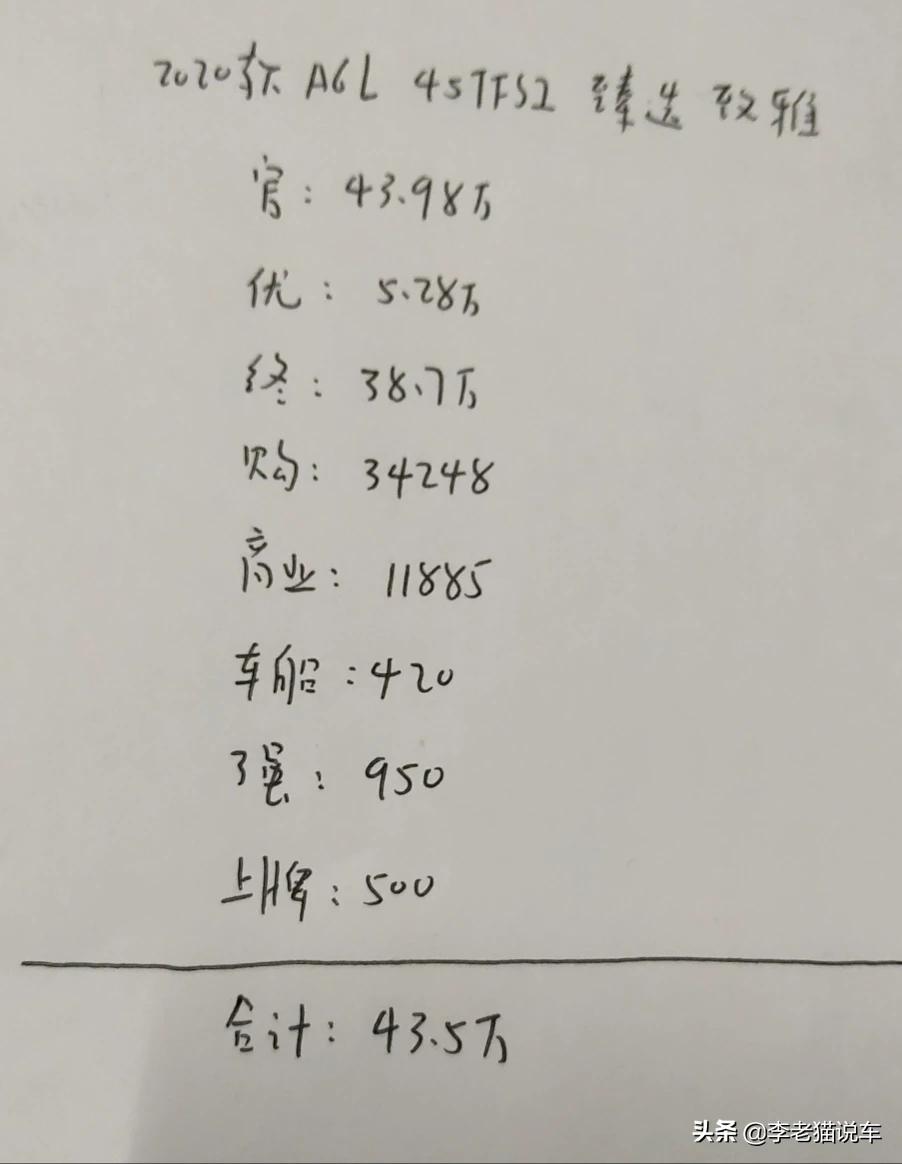 2020款 A6L 45TFSI 臻选 致雅
官: 43.98万
优: 5.28万
终: 38.7万
购: 34248
商业: 11885
车船: 420
强: 950
上牌: 500
合计: 43.5万
头条 @李老猫说车